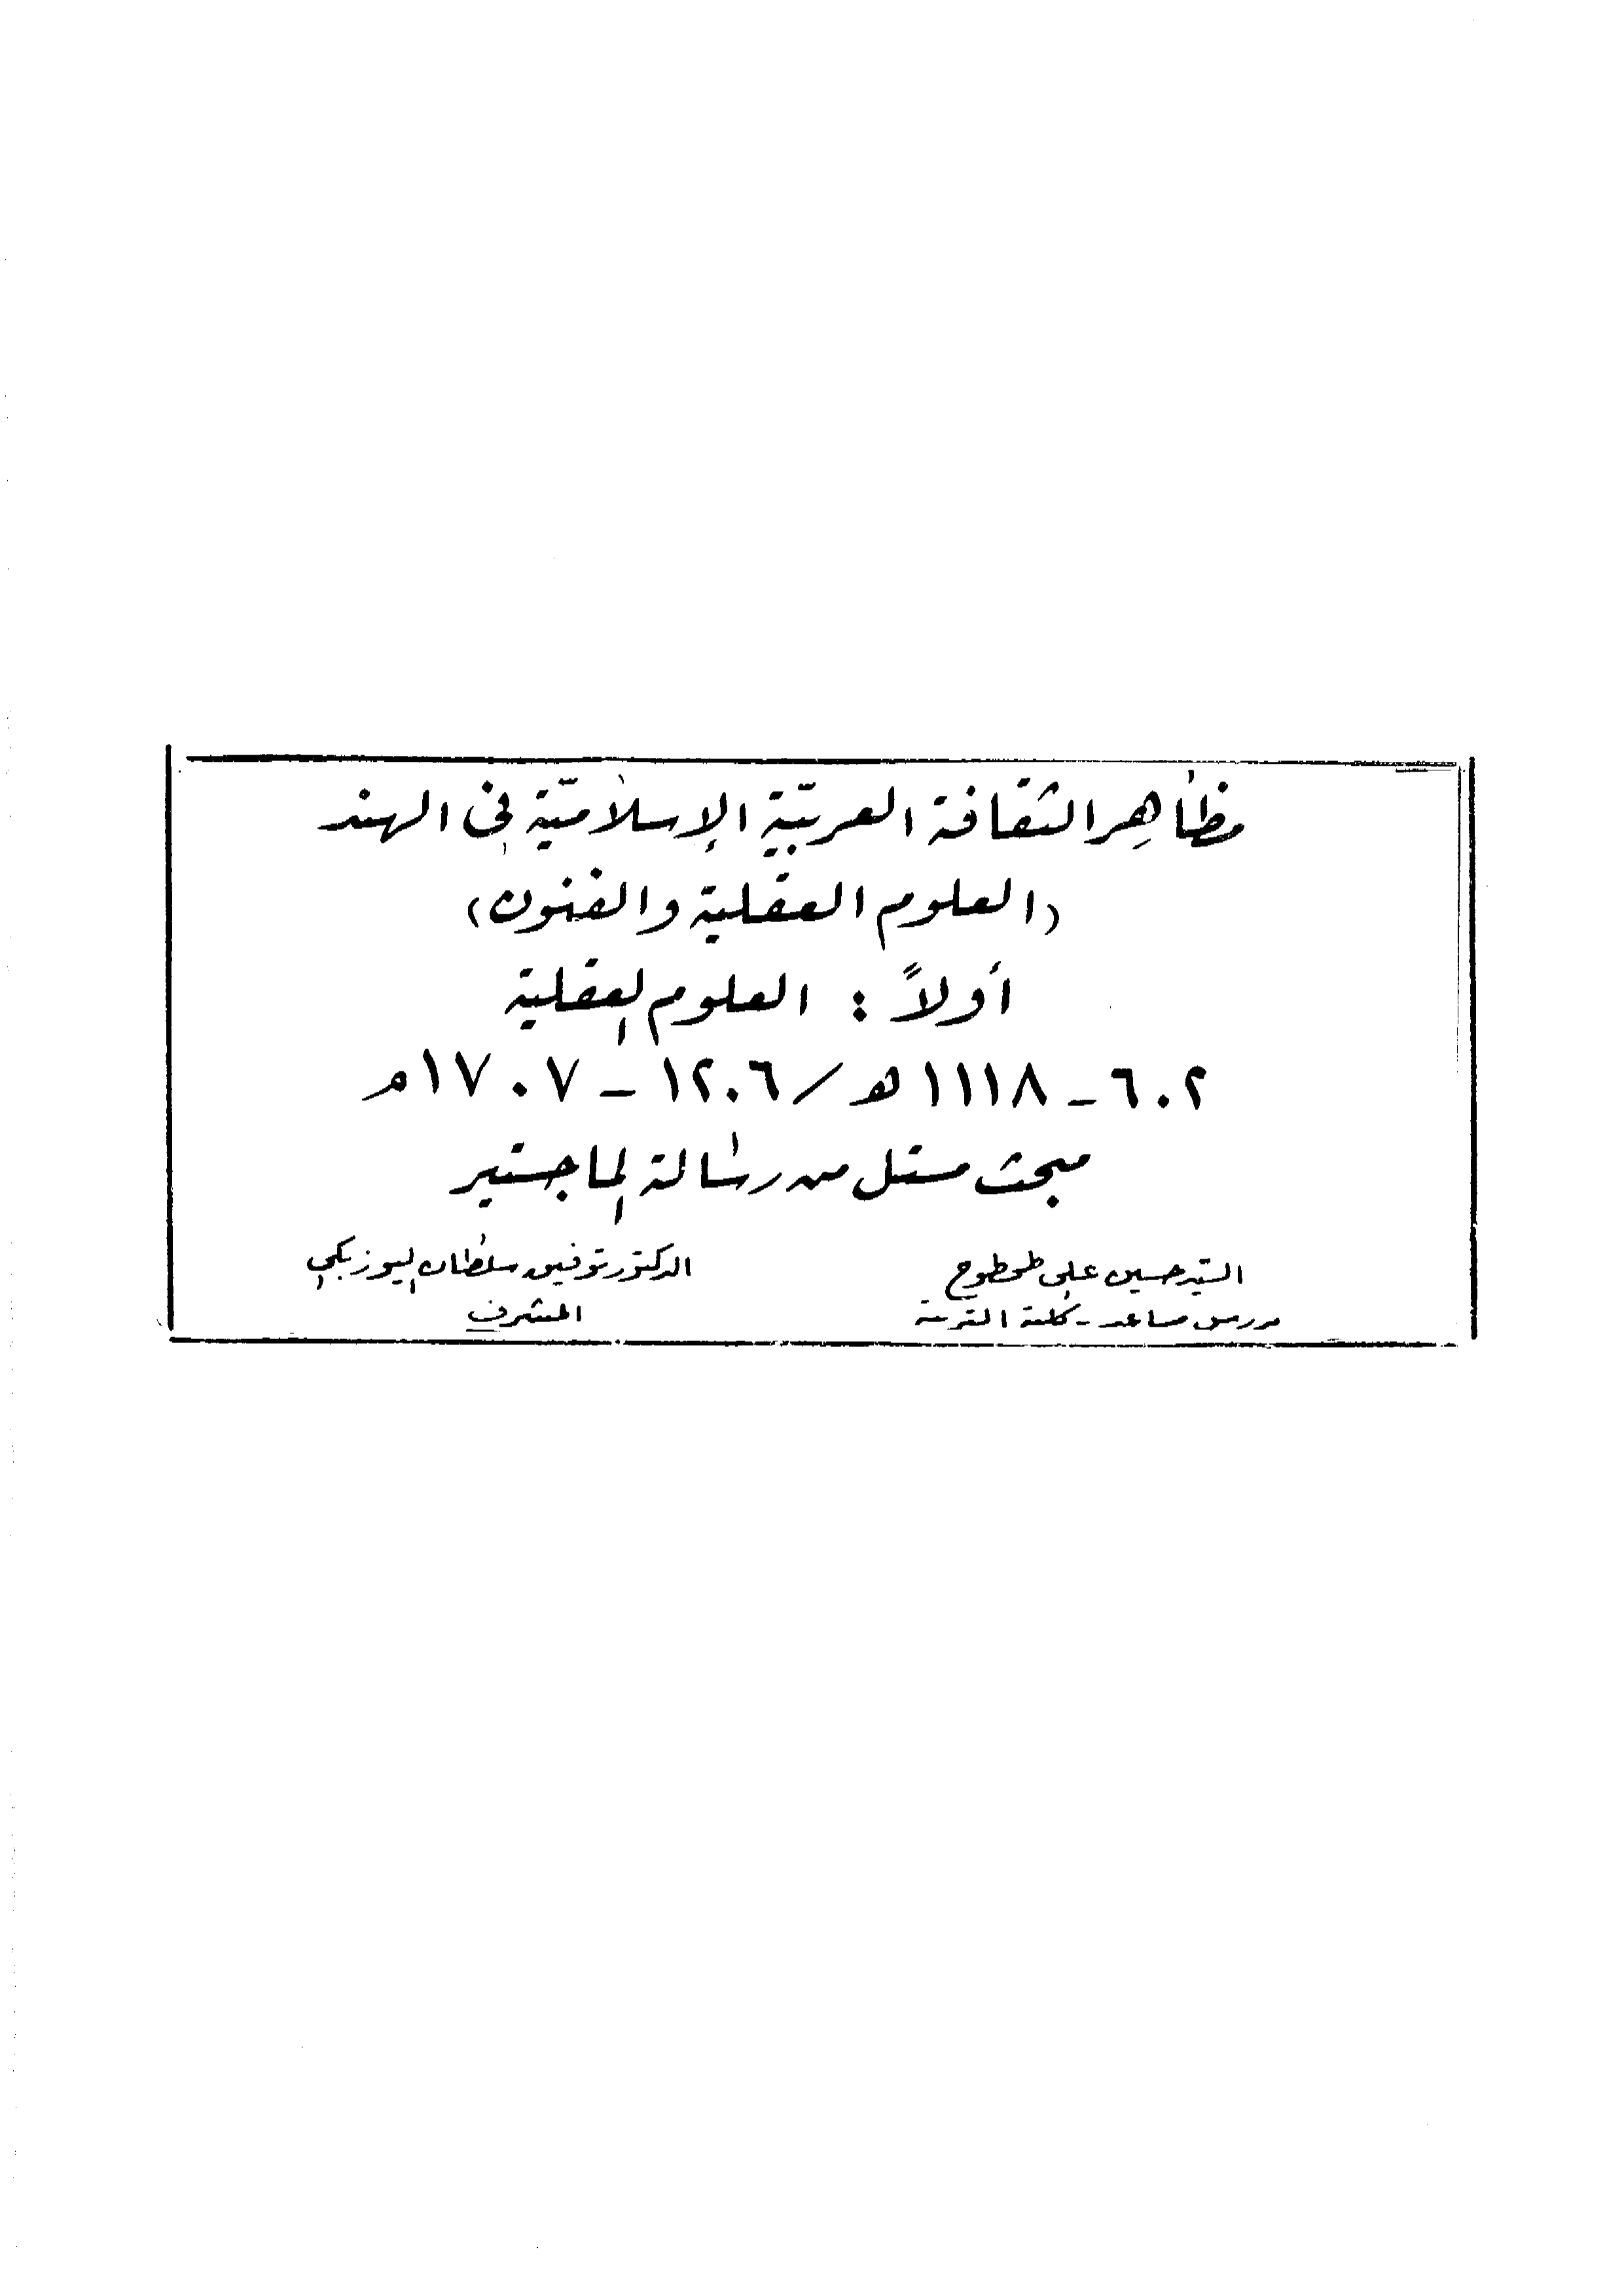 مظاهر الثقافة العربيّة الإسلاميّة في الهند
(العلوم العقلية والفنون)
أولاً : العلوم العقلية
٦٠٢ - ١١١٨ هـ / ١٢٠٦ - ١٧٠٧م
مبحث مستل من رسالة الماجستير
السيد حسين علي طحطوح
مدرس مساعد - كلية التربية
الدكتور توفيق سلطان اليوزبكي
المشرف